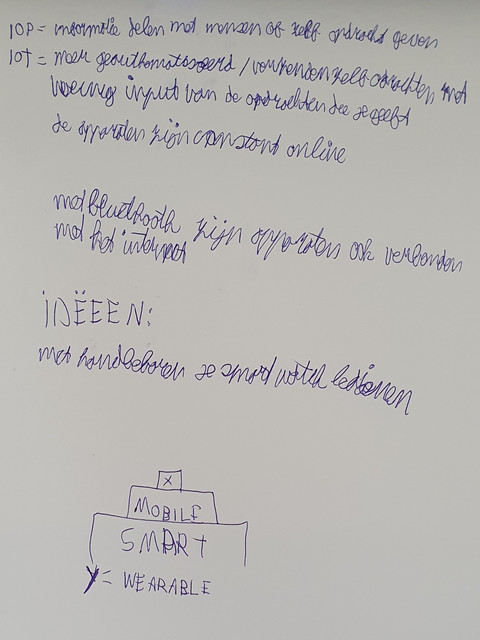 IOP = informatie delen met mensen of zelf opdracht geven
IOT = meer geauthomatiseerd / voeren zelf opdrachten met
weinig input van de opdrachten die je geeft
de apparaten zijn constant online
met bluethooth zijn apparaten ook verbonden
met het internet
IDËEEN:
met handgebaren je smart watch bedienen
X
MOBILE
SMART
Y = WEARABLE